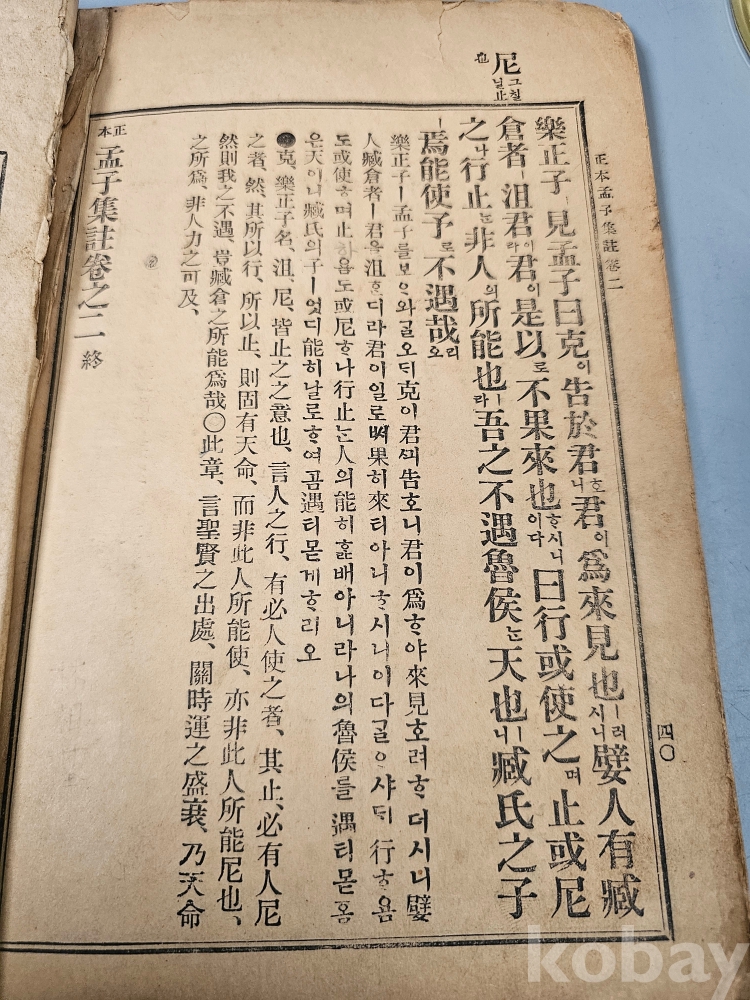 正本孟子集註卷二
四〇
尼
그칠
닐止
也
樂正子ㅣ見孟子曰克이告於君호니君이爲來見也ㅣ러시니嬖人有臧
倉者ㅣ沮君이라君이是以로不果來也ᄒᆞ시니이다曰行或使之며止或尼
之나行止ᄂᆞᆫ非人의所能也ㅣ라吾之不遇魯侯ᄂᆞᆫ天也ㅣ니臧氏之子
ㅣ焉能使予로不遇哉리오
樂正子ㅣ孟子를보ᄋᆞ와ᄀᆞᆯ오ᄃᆡ克이君ᄭᅴ告호니君이爲ᄒᆞ야來見호려ᄒᆞ더시니嬖
人臧倉者ㅣ君을沮ᄒᆞᆫ디라君이일로ᄡᅥ果히來티아니ᄒᆞ시니이다ᄀᆞᆯᄋᆞ샤ᄃᆡ行ᄒᆞ욤
도或使ᄒᆞ며止ᄒᆞ욤도或尼ᄒᆞ나行止ᄂᆞᆫ人의能히ᄒᆞᆯ배아니라나의魯侯를遇티몯홈
은天이니臧氏의子ㅣ엇디能히날로ᄒᆞ여곰遇티몯게ᄒᆞ리오
●克、樂正子名、沮、尼、皆止之之意也、言人之行、有必人使之者、其止、必有人尼
之者、然、其所以行、所以止、則固有天命、而非此人所能使、亦非此人所能尼也、
然則我之不遇、豈臧倉之所能爲哉〇此章、言聖賢之出處、關時運之盛衰、乃天命
之所爲、非人力之可及、
正本 孟子集註卷之二 終
kobay